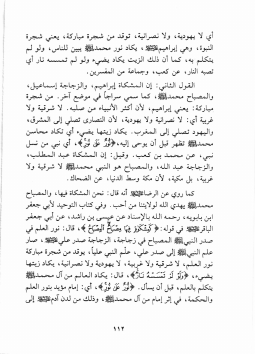 أي لا يهودية، ولا نصرانية، توقد من شجرة مباركة، يعني شجرة
النبوة، وهي إبراهيم ﷺ، يكاد نور محمد ﷺ يبين للناس، ولو لم
يتكلم به، كما أن ذلك الزيت يكاد يضيء ولو لم تمسسه نار أي
تصبه النار، عن كعب، وجماعة من المفسرين.
القول الثاني: إن المشكاة إبراهيم، والزجاجة إسماعيل،
والمصباح محمد ﷺ، كما سمي سراجاً في موضع آخر. من شجرة
مباركة: يعني إبراهيم، لأن أكثر الأنبياء من صلبه. لا شرقية ولا
غربية أي: لا نصرانية ولا يهودية، لأن النصارى تصلي إلى المشرق،
واليهود تصلي إلى المغرب. يكاد زيتها يضيء أي تكاد محاسن
محمد ﷺ تظهر قبل أن يوحى إليه، ﴿نُورٌ عَلَى نُورٍ﴾، أي نبي من نسل
نبي، عن محمد بن كعب. وقيل: إن المشكاة عبد المطلب،
والزجاجة عبد الله، والمصباح هو النبي محمد ﷺ لا شرقية ولا
غربية، بل مكية، لأن مكة وسط الدنيا، عن الضحاك.
كما روي عن الرضا أنه قال: نحن المشكاة فيها، والمصباح
محمد ﷺ يهدي الله لولايتنا من أحب. وفي كتاب التوحيد لأبي جعفر
ابن بابويه، رحمه الله بالإسناد عن عيسى بن راشد، عن أبي جعفر
الباقر في قوله: ﴿كَمِشْكَاةٍ فِيهَا مِصْبَاحٌ الْمِصْبَاحُ﴾، قال: نور العلم في
صدر النبي ﷺ المصباح في زجاجة، الزجاجة صدر علي، صار
علم النبي ﷺ إلى صدر علي، علّم النبي علياً، يوقد من شجرة مباركة
نور العلم، لا شرقية ولا غربية، لا يهودية ولا نصرانية، يكاد زيتها
يضيء، ﴿وَلَوْ لَمْ تَمْسَسْهُ نَارٌ﴾، قال: يكاد العالم من آل محمد ﷺ
يتكلم بالعلم، قبل أن يسأل. ﴿نُورٌ عَلَى نُورٍ﴾، أي: إمام مؤيد بنور العلم
والحكمة، في إثر إمام من آل محمد ﷺ، وذلك من لدن آدم إلى
١١٢